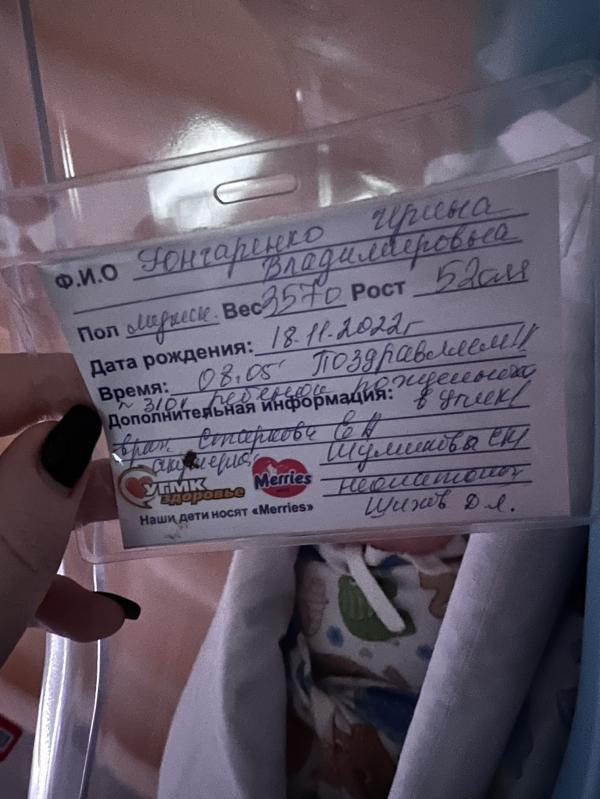 Ф.И.О Гончаренко Ирина
Владимировна
Пол мужск. Вес 3570 Рост 52см
Дата рождения: 18.11.2022г
Время: 08.05 Поздравляем!!
310й ребенок рожденный
Дополнительная информация: в УГМК!
врач Старкова Е
акушерка
неонатолог
УГМК здоровье
Merries
Наши дети носят «Merries»